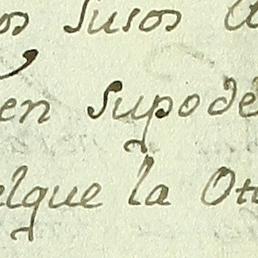 os susos
en Supode
elque la Ot